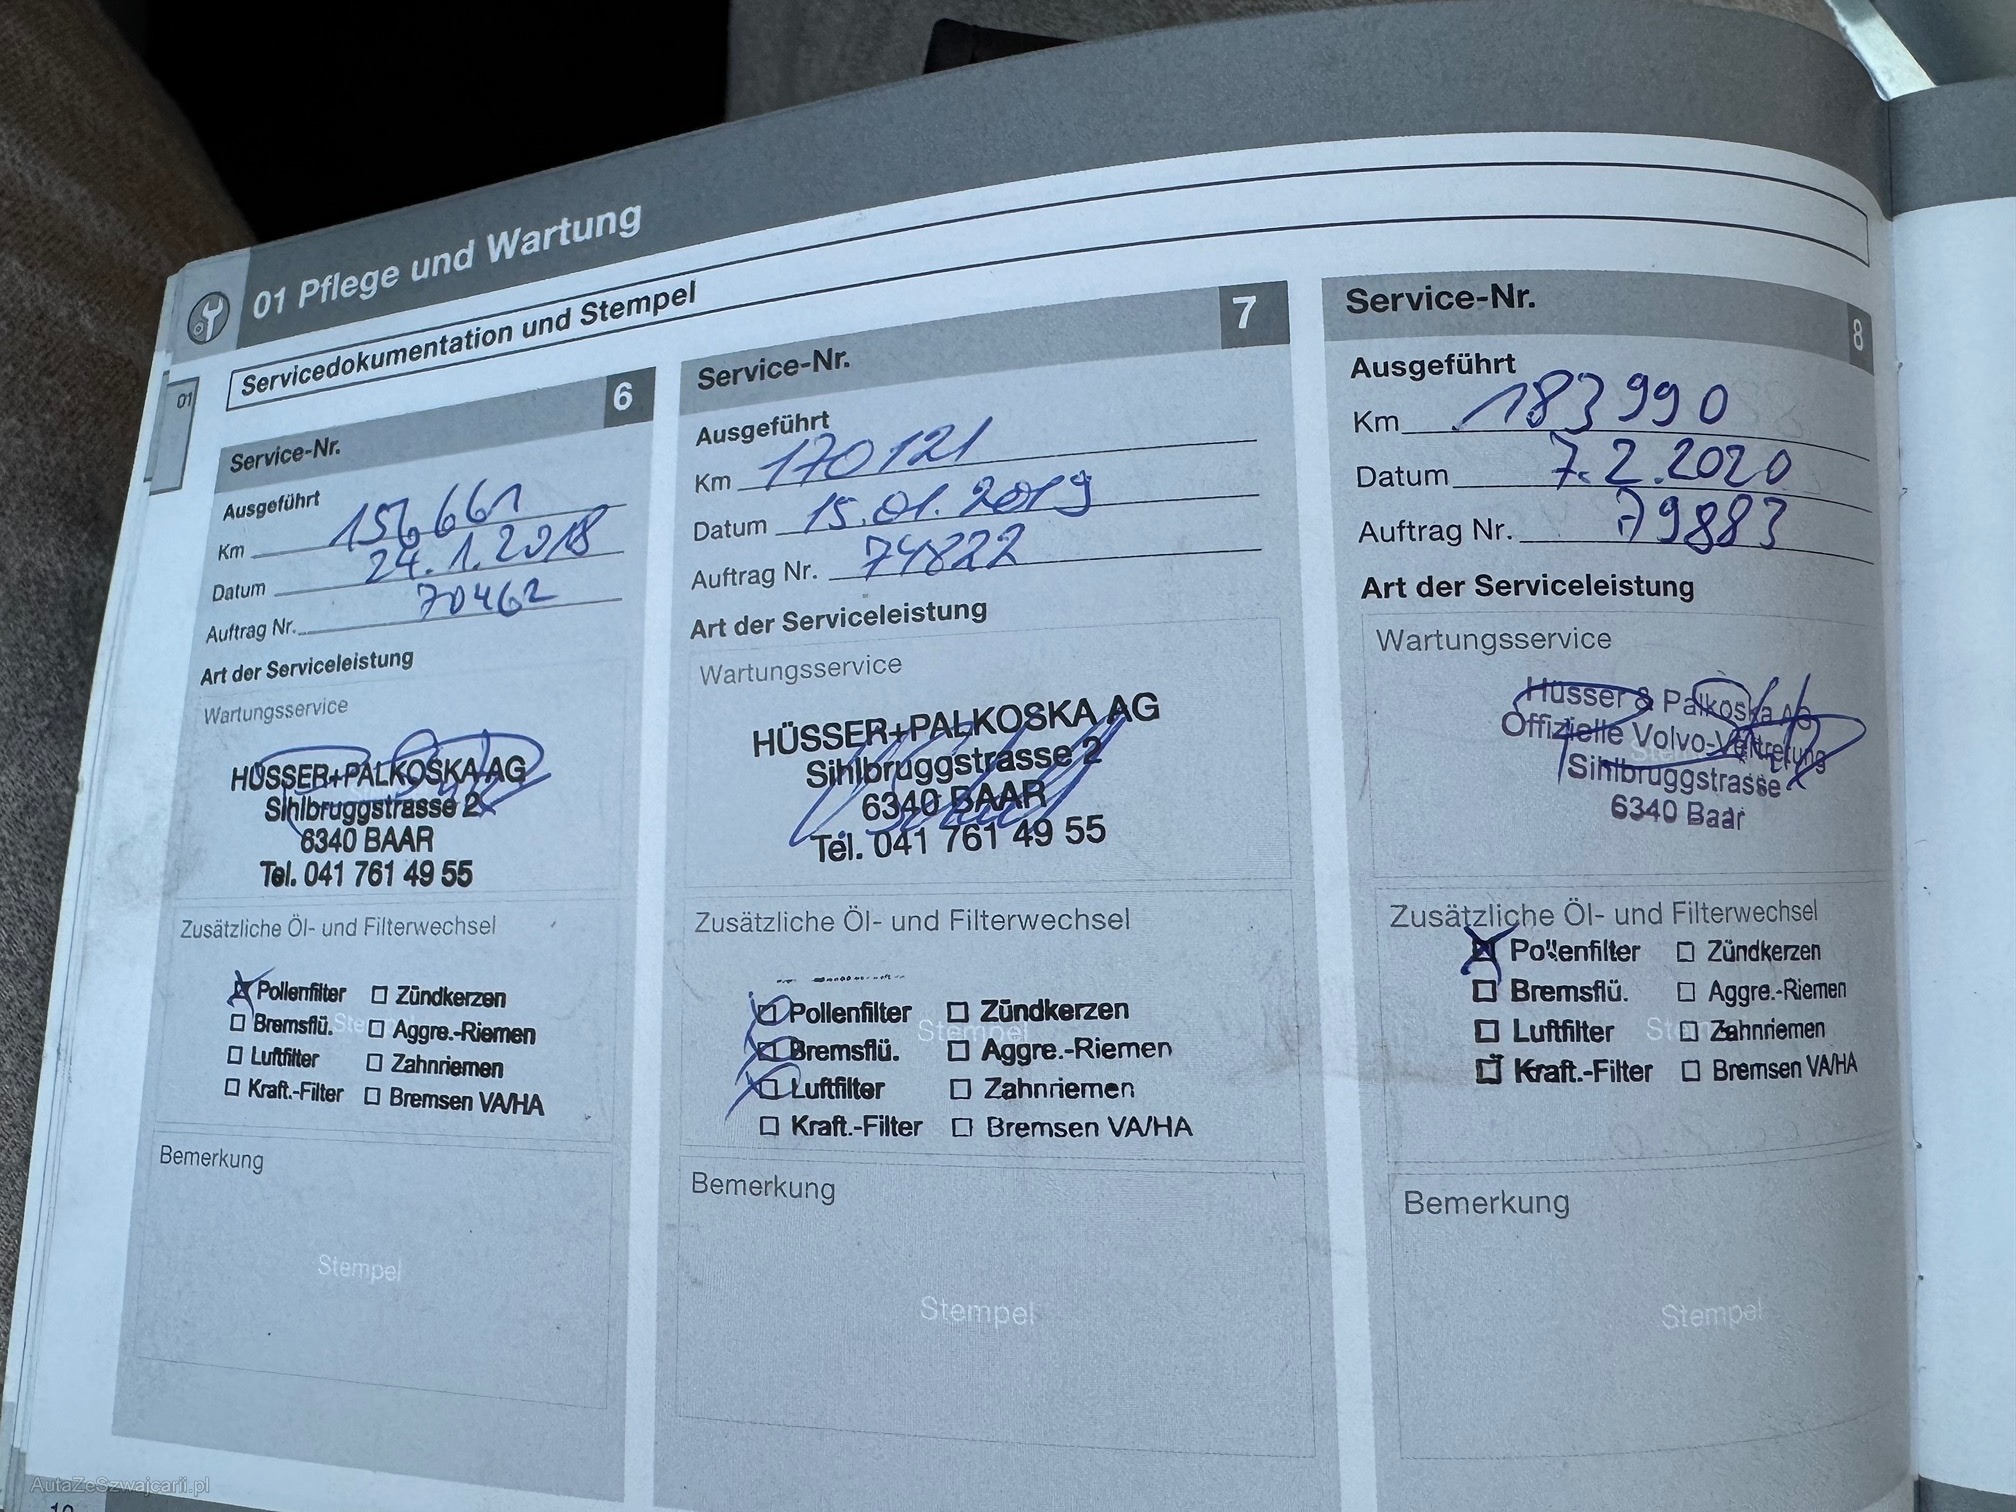 01 Pflege und Wartung
Servicedokumentation und Stempel
01
Service-Nr. 6
Ausgeführt
Km 156661
Datum 24.1.2018
Auftrag Nr. 70462
Art der Serviceleistung
Wartungsservice
HÜSSER+PALKOSKA AG
Sihlbruggstrasse 2
6340 BAAR
Tel. 041 761 49 55
Zusätzliche Öl- und Filterwechsel
Pollenfilter Zündkerzen
Bremsflü. Aggre.-Riemen
Stempel
Luftfilter Zahnriemen
Kraft.-Filter Bremsen VA/HA
Bemerkung
Stempel
Service-Nr. 7
Ausgeführt
Km 170121
Datum 15.01.2019
Auftrag Nr. 74822
Art der Serviceleistung
Wartungsservice
HÜSSER+PALKOSKA AG
Sihlbruggstrasse 2
6340 BAAR
Tel. 041 761 49 55
Zusätzliche Öl- und Filterwechsel
Pollenfilter Zündkerzen
Stempel
Bremsflü. Aggre.-Riemen
Luftfilter Zahnriemen
Kraft.-Filter Bremsen VA/HA
Bemerkung
Stempel
Service-Nr. 8
Ausgeführt
Km 183990
Datum 7.2.2020
Auftrag Nr. 79883
Art der Serviceleistung
Wartungsservice
Hüsser & Palkoska AG
Offizielle Volvo-Vertretung
Sihlbruggstrasse
6340 Baar
Zusätzliche Öl- und Filterwechsel
Pollenfilter Zündkerzen
Bremsflü. Aggre.-Riemen
Luftfilter Zahnriemen
Stempel
Kraft.-Filter Bremsen VA/HA
Bemerkung
Stempel
AutaZeSzwajcarii.pl